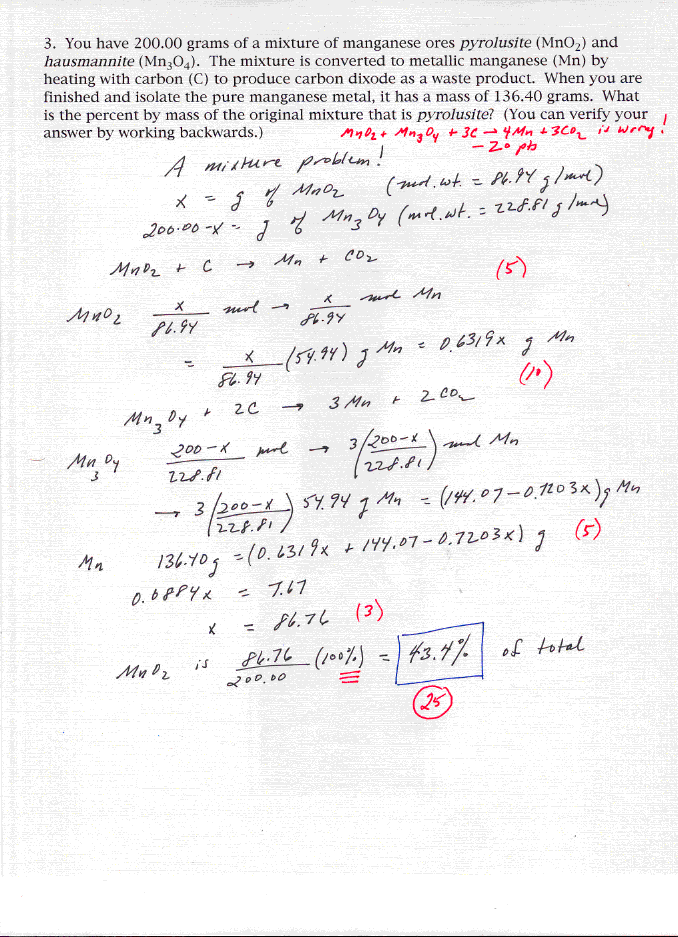 3. You have 200.00 grams of a mixture of manganese ores pyrolusite (MnO₂) and
hausmannite (Mn₃O₄). The mixture is converted to metallic manganese (Mn) by
heating with carbon (C) to produce carbon dixode as a waste product. When you are
finished and isolate the pure manganese metal, it has a mass of 136.40 grams. What
is the percent by mass of the original mixture that is pyrolusite? (You can verify your
answer by working backwards.)
MnO₂ + Mn₃O₄ + 3C → 4Mn + 3CO₂ is wrong!
- 20 pts
A mixture problem!
x = g of MnO₂ (mol. wt. = 86.94 g/mol)
200.00-x = g of Mn₃O₄ (mol. wt. = 228.81 g/mol)
MnO₂ + C → Mn + CO₂ (5)
MnO₂ x/86.94 mol → x/86.94 mol Mn
= x/86.94 (54.94) g Mn = 0.6319x g Mn
(10)
Mn₃O₄ + 2C → 3 Mn + 2 CO₂
Mn₃O₄ 200-x/228.81 mol → 3(200-x/228.81) mol Mn
→ 3(200-x/228.81) 54.94 g Mn = (144.07-0.7203x)g Mn
Mn 136.40 g = (0.6319x + 144.07-0.7203x) g (5)
0.0884x = 7.67
x = 86.76 (3)
MnO₂ is 86.76/200.00 (100%) = 43.4% of total
25